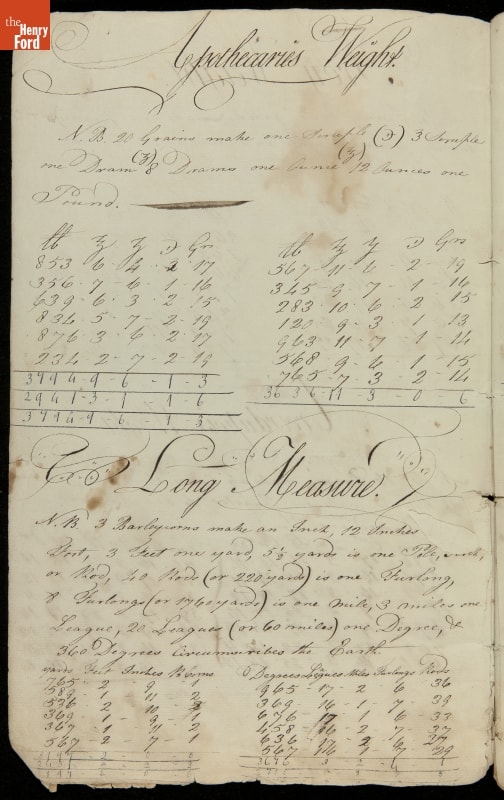 the
Henry
Ford
Apothecaries Weight.
N.B. 20 Grains make one Scruple (℈) 3 Scruple
one Dram (ʒ) 8 Drams one Ounce (℥) 12 Ounces one
Pound.
℔ ℥ ʒ ℈ Grs
853 - 6 - 4 - 2 - 17
356 - 7 - 6 - 1 - 16
639 - 6 - 3 - 2 - 15
834 - 5 - 7 - 2 - 19
876 - 3 - 6 - 2 - 17
234 - 2 - 7 - 2 - 19
3794 - 9 - 6 - 1 - 3
2941 - 3 - 1 - 1 - 6
3794 - 9 - 6 - 1 - 3
℔ ℥ ʒ ℈ Grs
567 - 11 - 6 - 2 - 19
345 - 9 - 7 - 1 - 16
283 - 10 - 6 - 2 - 15
120 - 9 - 3 - 1 - 13
963 - 11 - 7 - 1 - 14
568 - 9 - 6 - 1 - 15
765 - 7 - 3 - 2 - 14
3636 - 11 - 3 - 0 - 6
Long Measure.
N.B. 3 Barleycorns make an Inch, 12 Inches
Foot, 3 Feet one yard, 5½ yards is one Pole,
or Rod, 40 Rods (or 220 yards) is one Furlong,
8 Furlongs (or 1760 yards) is one mile, 3 miles one
League, 20 Leagues (or 60 miles) one Degree, &
360 Degrees Circumscribes the Earth
yards Feet Inches B Corns
765 - 2 - 9 - 1
589 - 1 - 11 - 2
536 - 2 - 10 - 2
369 - 1 - 9 - 1
367 - 1 - 11 - 2
567 - 2 - 7 - 1
Degrees Legues Miles Furlongs Rods
965 - 17 - 2 - 6 - 36
369 - 16 - 1 - 7 - 39
676 - 17 - 1 - 6 - 33
458 - 16 - 2 - 7 - 37